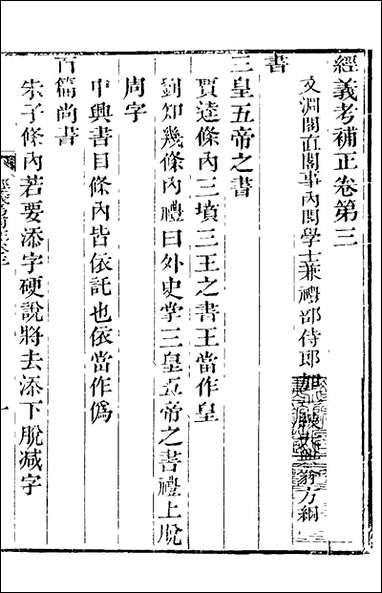 經義考補正卷第三
文淵閣直閣事內閣學士兼禮部侍郎加三級翁方綱
書
三皇五帝之書
賈逵條內三墳三王之書王當作皇
劉知幾條內禮曰外史掌三皇五帝之書禮上脫
周字
中興書目條內皆依託也依當作僞
百篇尚書
朱子條內若要添字硬說將去添下脫減字
一